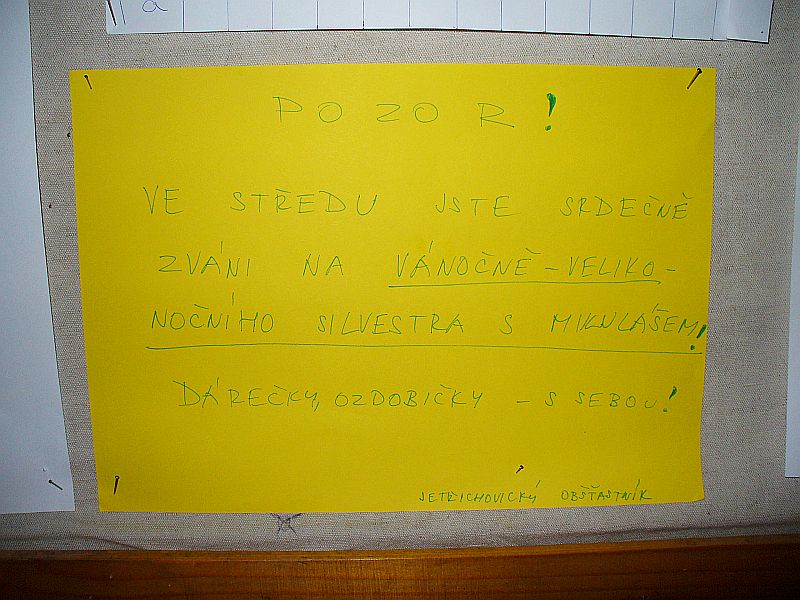 a
POZOR!
VE STŘEDU JSTE SRDEČNĚ
ZVÁNI NA VÁNOČNĚ-VELIKO-
NOČNÍHO SILVESTRA S MIKULÁŠEM!
DÁREČKY, OZDOBIČKY - S SEBOU!
JETŘICHOVICKÝ OBŠŤASTNÍK